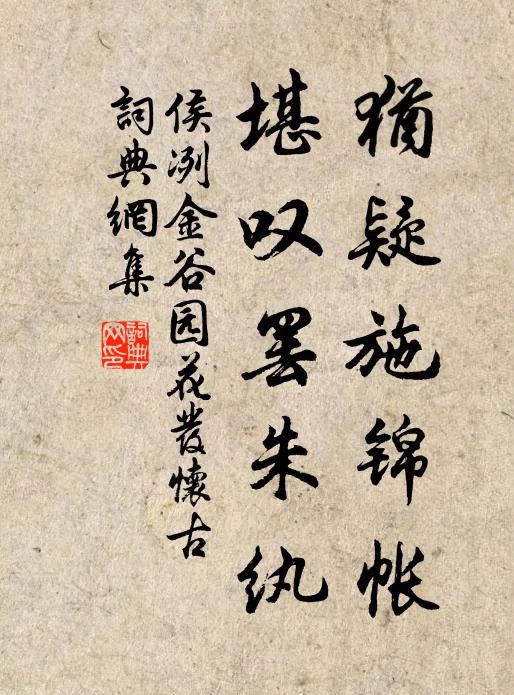 犹疑施锦帐
堪叹罢朱纨
侯冽金谷园花發懷古
詞典網集
詞典网印